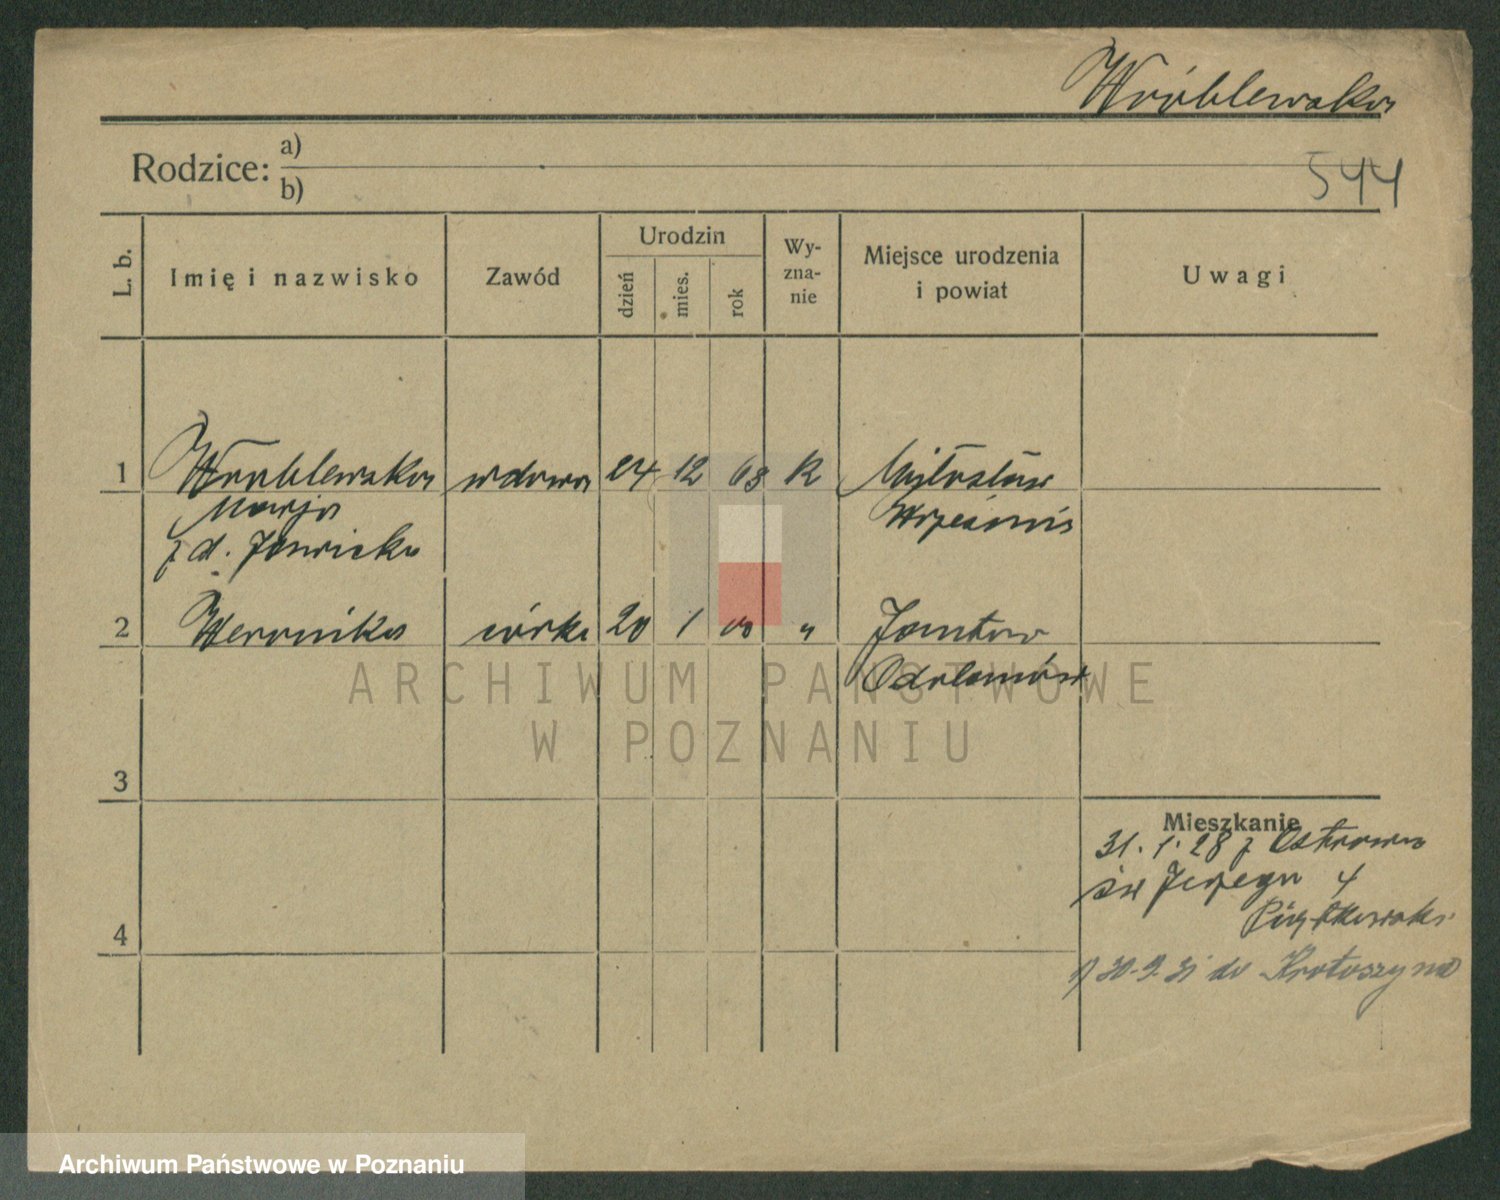 Wróblewska
Rodzice: a)
b)
544
L. b.
Imię i nazwisko
Zawód
Urodzin
dzień
mies.
rok
Wy-
zna-
nie
Miejsce urodzenia
i powiat
Uwagi
1 Wróblewska wdowa 24 12 63 k Miłosław
Marja Września
z d. Janicka
2 Weronika córka 20 1 „
Odolanów
ARCHIWUM PAŃSTWOWE
W POZNANIU
3
Mieszkanie
31. 1. 28 z Ostrowa
św Jerzego 4
4 Piątkowski
30. 9. 31 do Krotoszyna
Archiwum Państwowe w Poznaniu